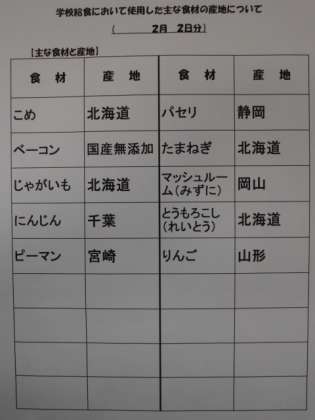 学校給食において使用した主な食材の産地について
( 2月 2日分)
[主な食材と産地]
食 材 産 地 食 材 産 地
こめ 北海道 パセリ 静岡
ベーコン 国産無添加 たまねぎ 北海道
じゃがいも 北海道 マッシュルーム(みずに) 岡山
にんじん 千葉 とうもろこし(れいとう) 北海道
ピーマン 宮崎 りんご 山形